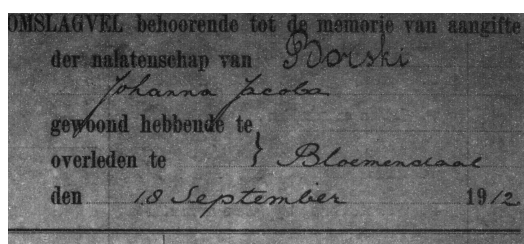 OMSLAGVEL behoorende tot de memorie van aangifte
der nalatenschap van Borski
Johanna Jacoba
gewoond hebbende te
overleden te } Bloemendaal
den 18 September 1912